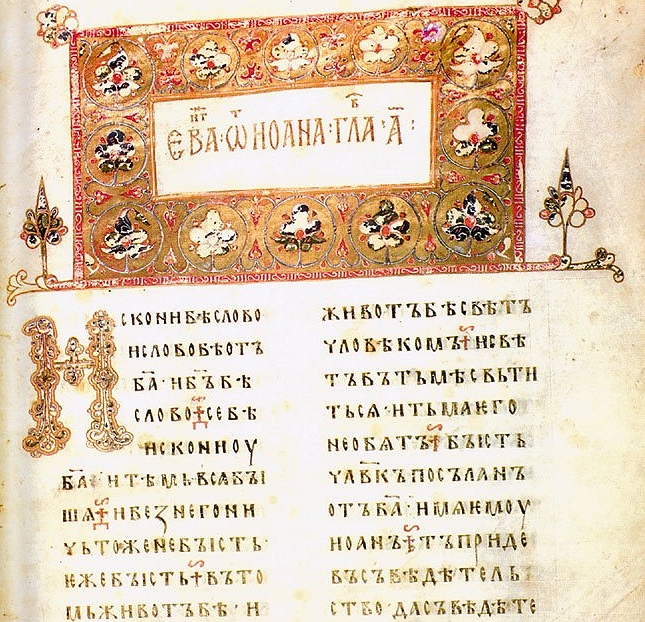 ЕВА · ѠИОАНА · ГЛА · А҃ :
ИСКОНИБѢСЛОВО
ИСЛОВОБѢОТЪ
БА҃ · ИБ҃ЪБѢ
СЛОВО СЕБѢ
ИСКОНИОУ
БА҃ · ИТѢМЬВСѦБЪІ
ШѦ ИБЕЗНЕГОНИ
ЧЬТОЖЕНЕБЪІСТЬ ·
ѤЖЕБЪІСТЬ ВЪТО
МЬЖИВОТЪБѢ · И
ЖИВОТЪБѢСВѢТЪ
ЧЛОВѢКОМЪ ИСВѢ
ТЪВЪТЬМѢСВЬТИ
ТЬСѦ · ИТЬМАѤГО
НЕОБѦТЪ БЪІСТЬ
ЧЛВ҃КЪПОСЪЛАНЪ
ОТЪБА҃ · ИМѦѤМОУ
ИОАНЪ ТЪПРИДЕ
ВЪСЪВѢДѢТЕЛЬ
СТВО · ДАСЪВѢДѢТЕ